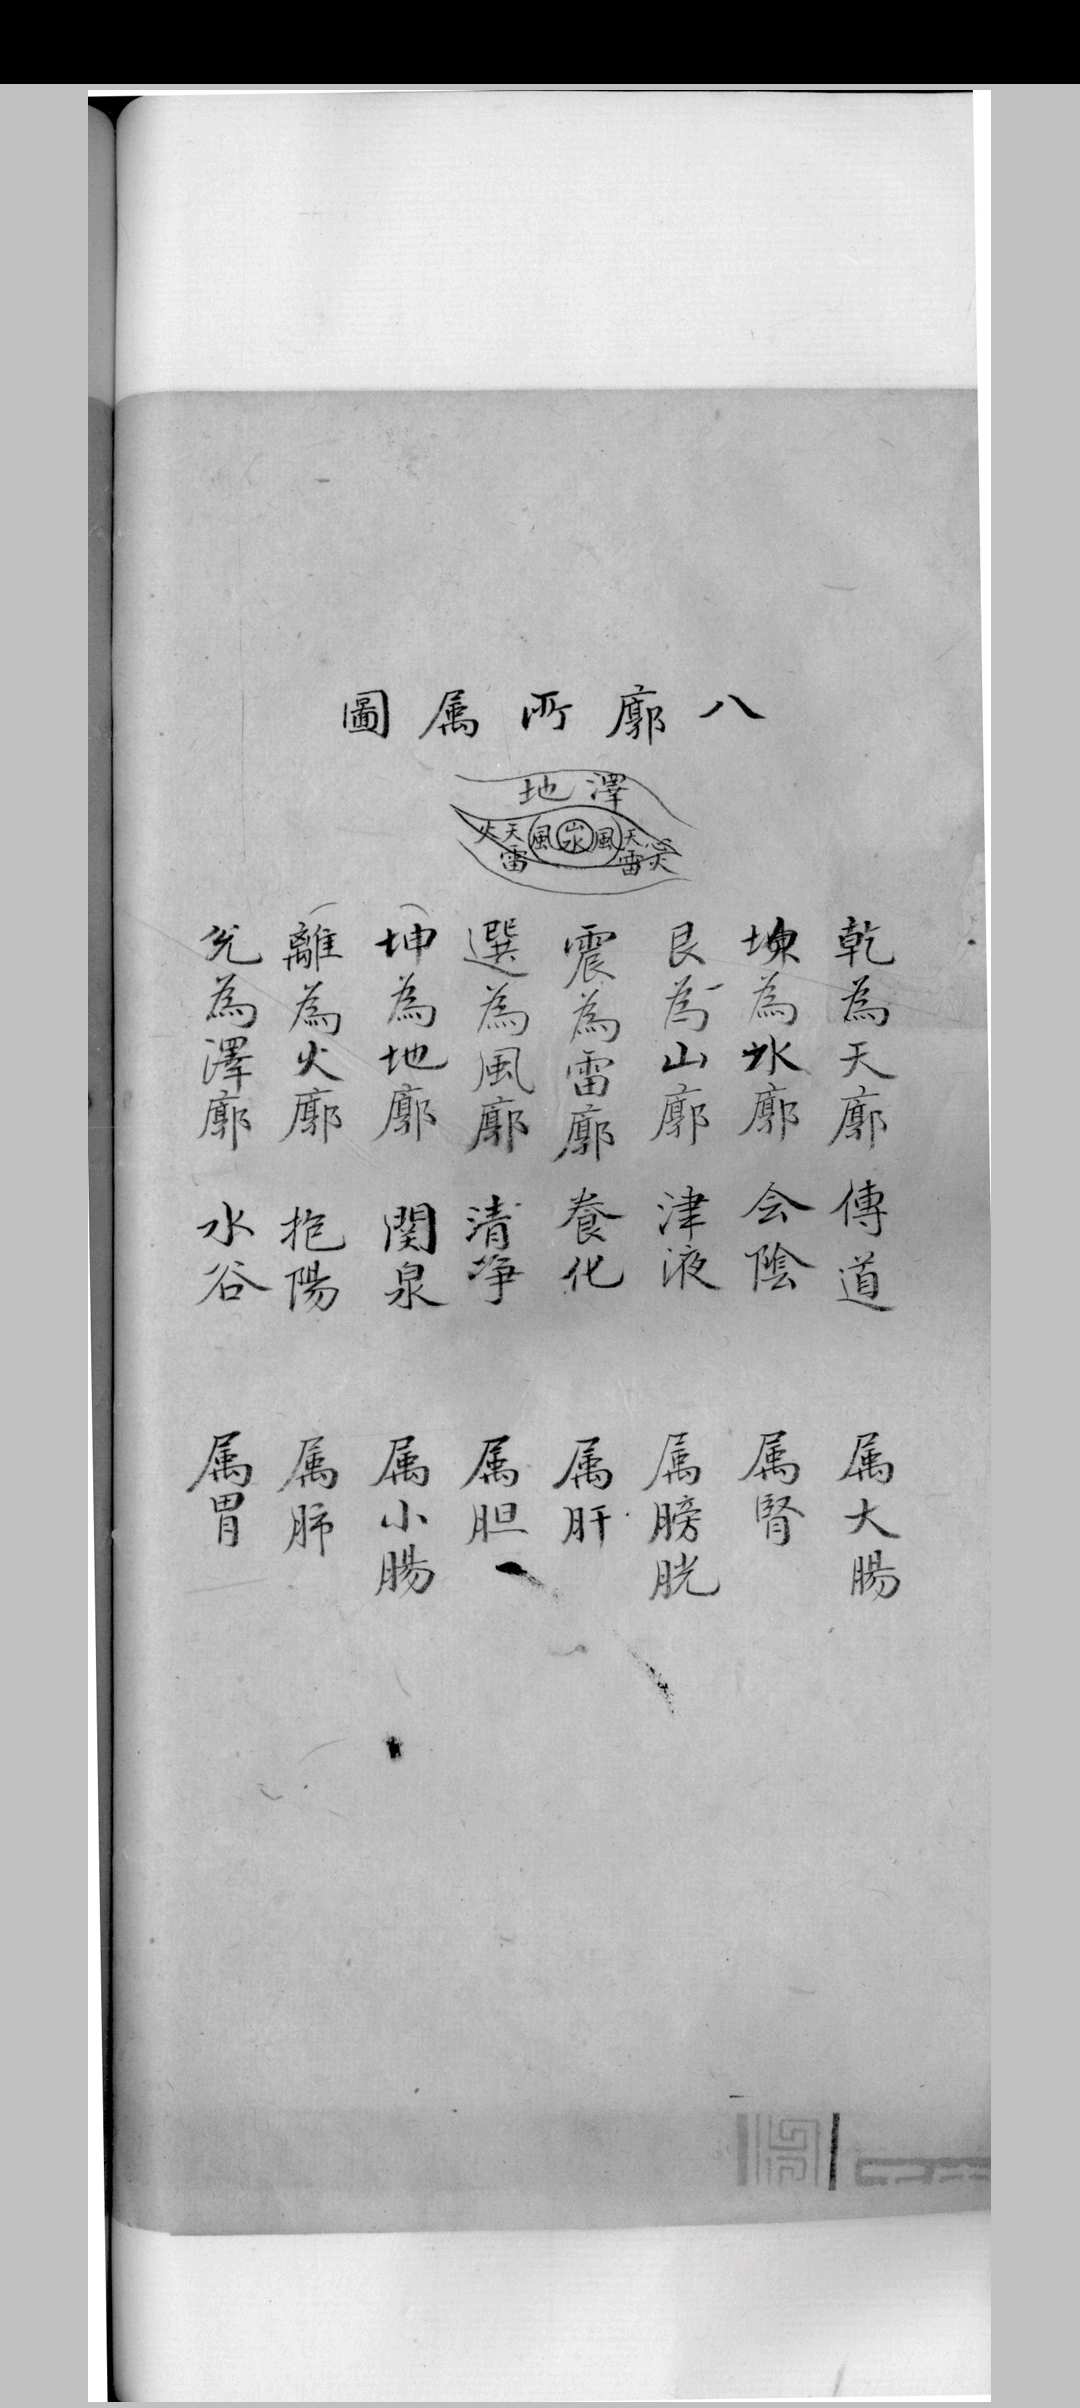 八廓所属圖
澤地
天心火雷
風山水風
天火雷
乾為天廓 傳道 属大腸
坎為水廓 会陰 属腎
艮為山廓 津液 属膀胱
震為雷廓 養化 属肝
選為風廓 清净 属胆
坤為地廓 関泉 属小腸
離為火廓 抱陽 属肺
兊為澤廓 水谷 属胃